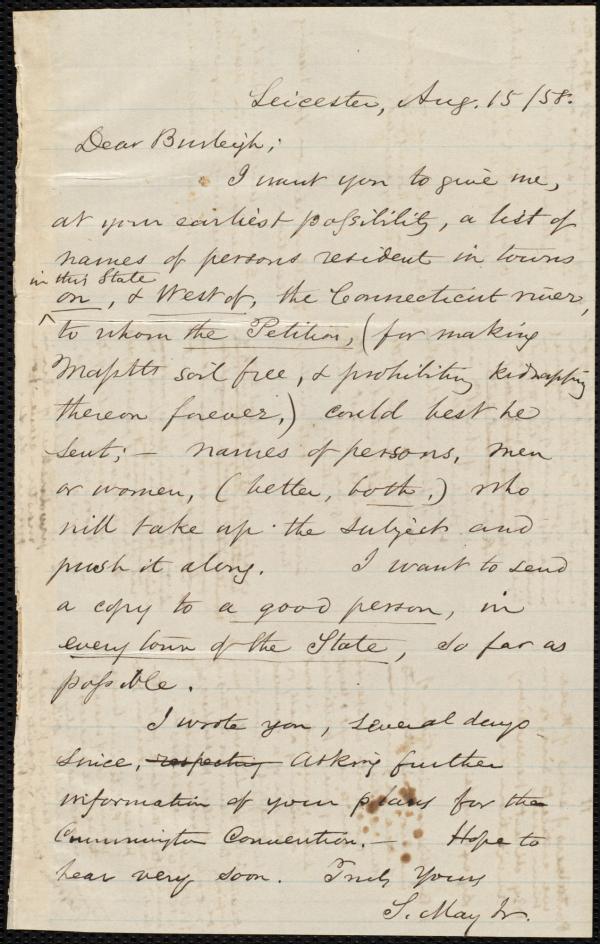 Leicester, Aug. 15/58.
Dear Burleigh;
I want you to give me,
at your earliest possibility, a list of
names of persons resident in towns
in this State
on, & West of, the Connecticut river,
to whom the Petition, (for making
Masstts soil free, & prohibiting kidnapping
thereon forever,) could best be
sent; — names of persons, men
or women, (better, both,) who
will take up the subject and
push it along. I want to send
a copy to a good person, in
every town of the State, so far as
possible.
I wrote you, several days
since, respecting asking further
information of your plans for the
Cummington Convention. — Hope to
hear very soon. Truly Yours
S. May Jr.